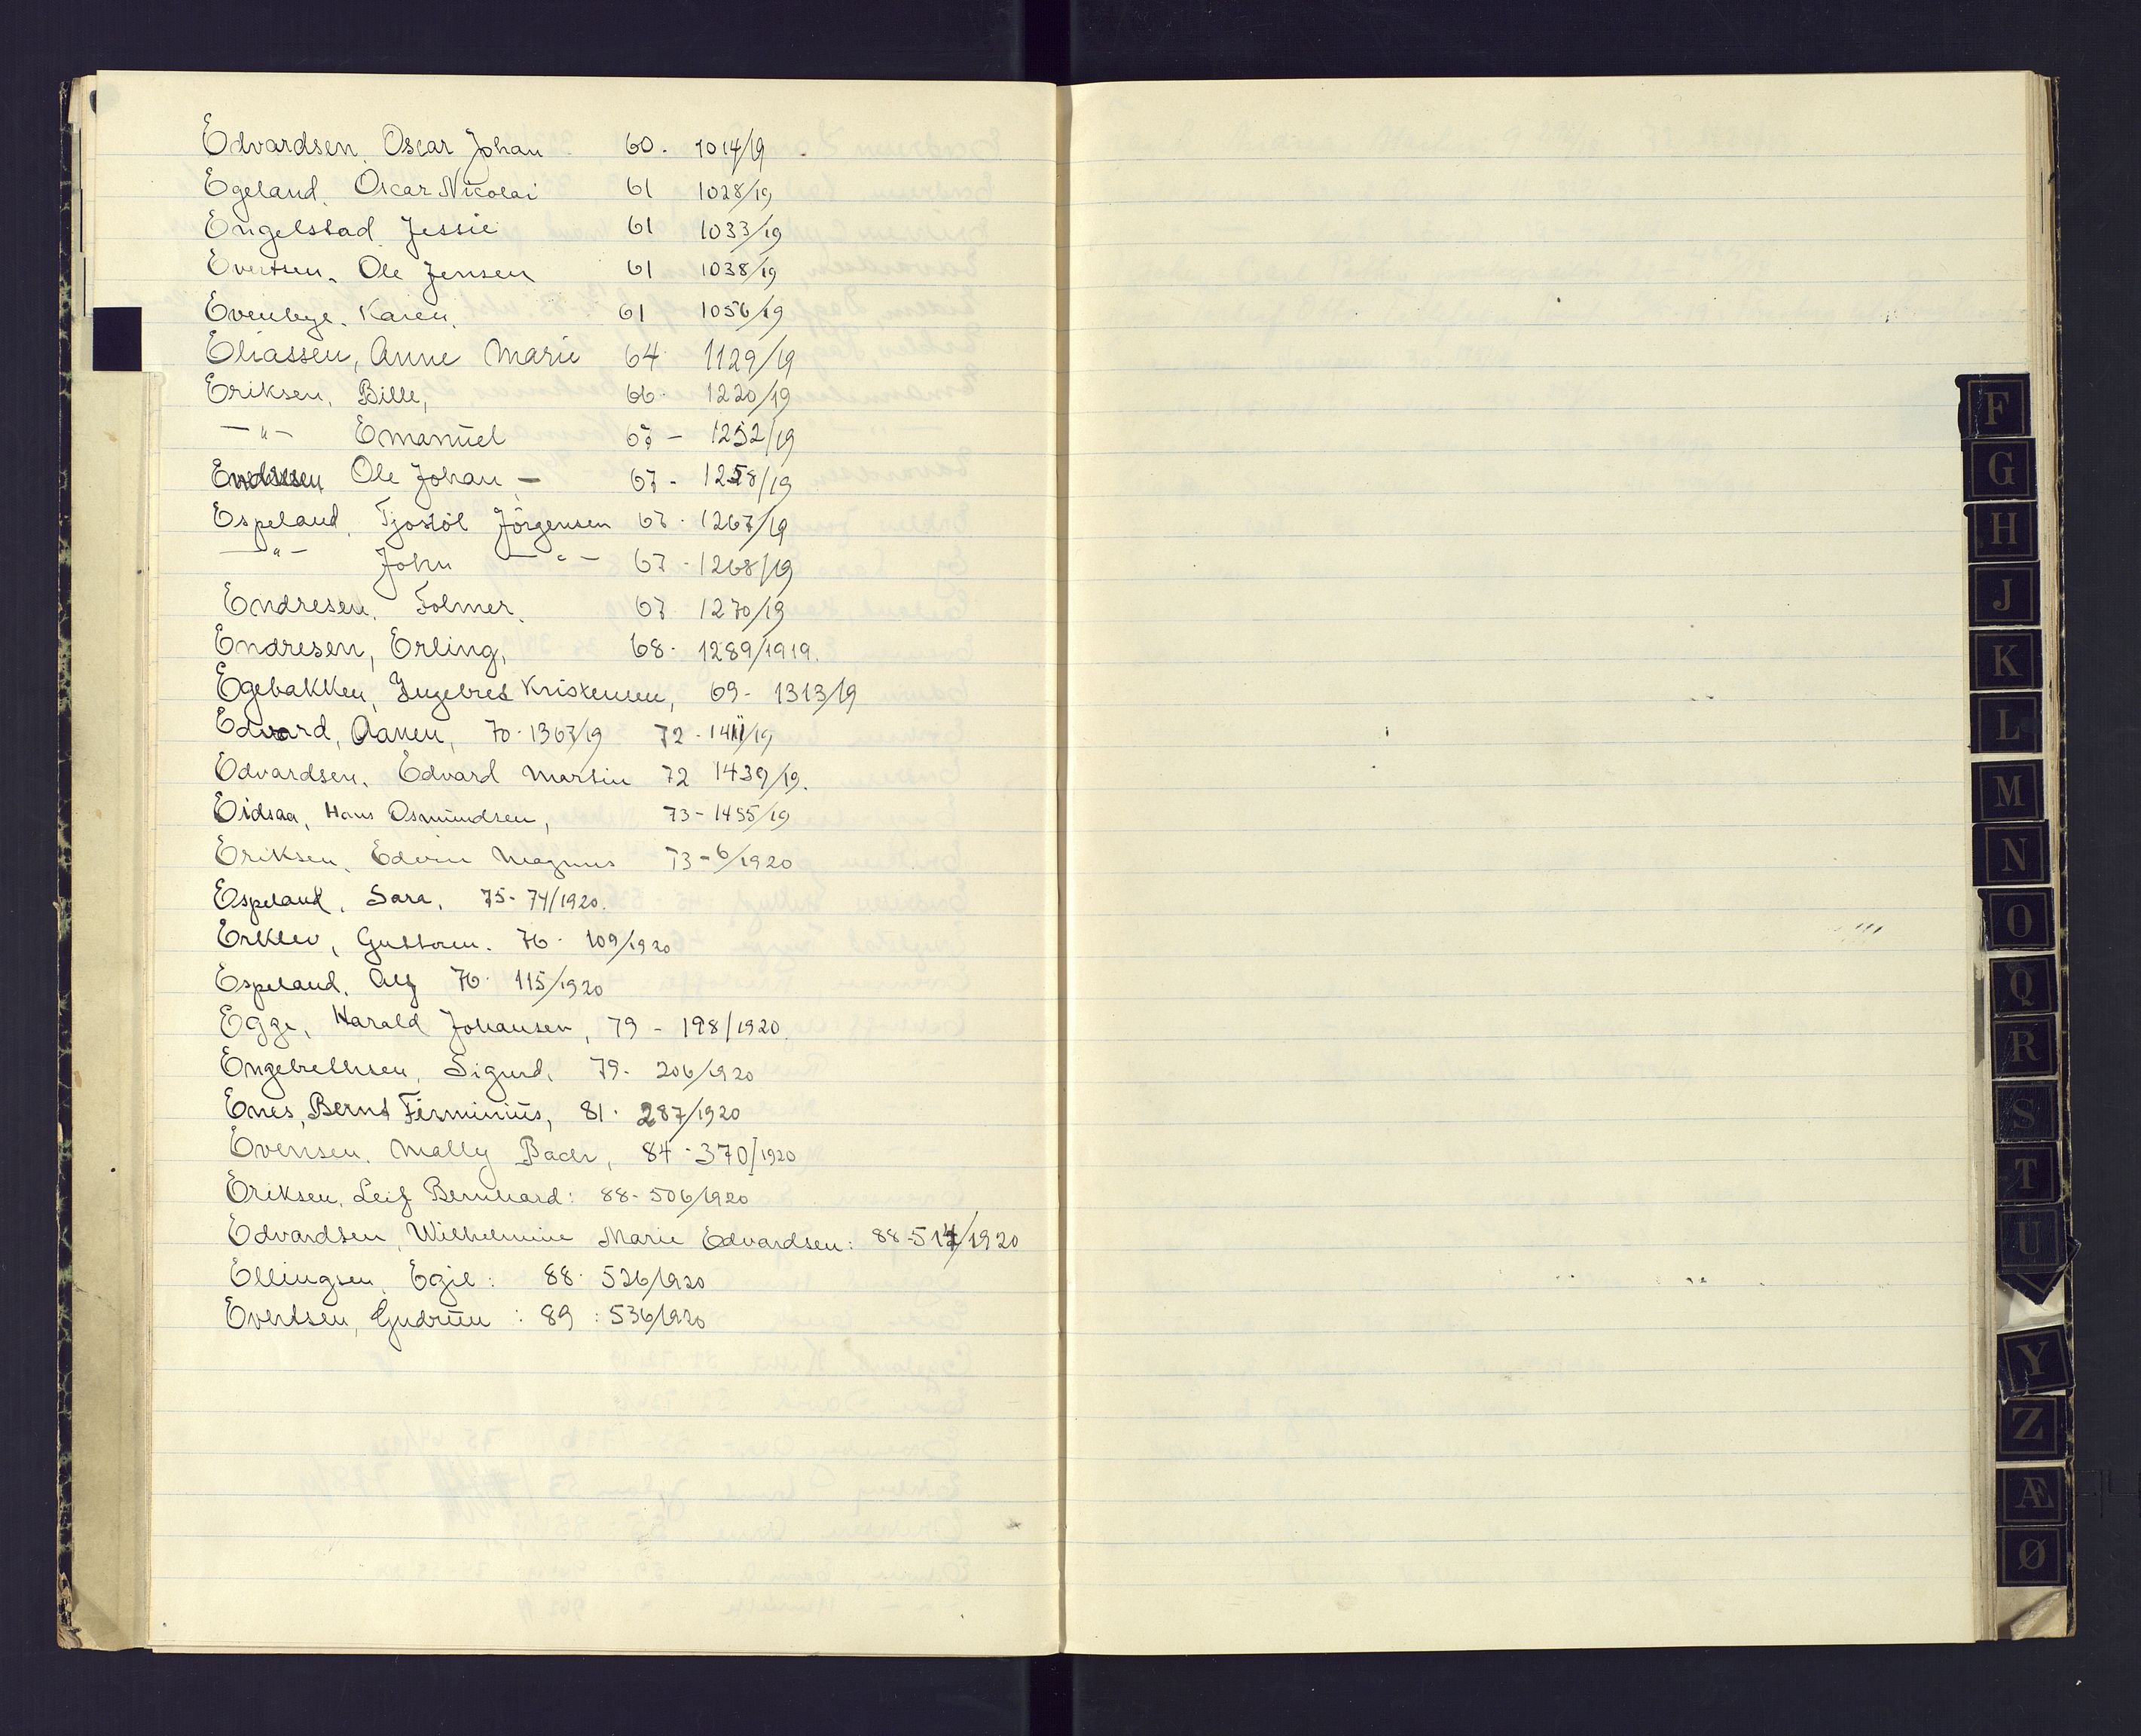 Edvardsen, Oscar Johan 60. 1014/19
Egeland, Oscar Nicolai 61 1028/19
Engelstad Jessie 61 1033/19
Evertsen, Ole Jensen 61 1038/19
Evenbye, Karen, 61 1056/19
Eliassen, Anne Marie 64 1129/19
Eriksen, Bille, 66. 1220/19
—"— Emanuel 67 — 1252/19
Ole Johan — 67 - 1258/19
Espeland, Tjostöl Jörgensen 67. 1267/19
—"— John —"— 67 - 1268/19
Endresen, Folmer, 67 1270/19
Endresen, Erling, 68. 1289/1919.
Egebakken, Ingebret Kristensen, 69- 1313/19
Edvard, Aanen, 70. 1367/19 72. 1411/19
Edvardsen, Edvard Martin 72 1439/19.
Eidsaa, Hans Osmundsen, 73-1455/19
Eriksen, Edvin Magnus 73-6/1920
Espeland, Sara, 75- 74/1920.
Erklev, Guttorm. 76. 109/1920
Espeland, Alf 76. 115/1920
Egge, Harald Johansen, 79 - 198/1920.
Engebrethsen, Sigurd, 79- 206/1920
Enes, Bernt Firminius, 81. 287/1920
Evensen, Mally Bach, 84-370/1920
Eriksen, Leif Bernhard: 88-506/1920
Edvardsen, Wilhelmine Marie Edvardsen: 88-514/1920
Ellingsen, Egil: 88. 526/1920
Evertsen, Gudrun : 89 : 536/1920
F
G
H
J
K
L
M
N
O
Q
R
S
T
U
Y
Z
Æ
Ø